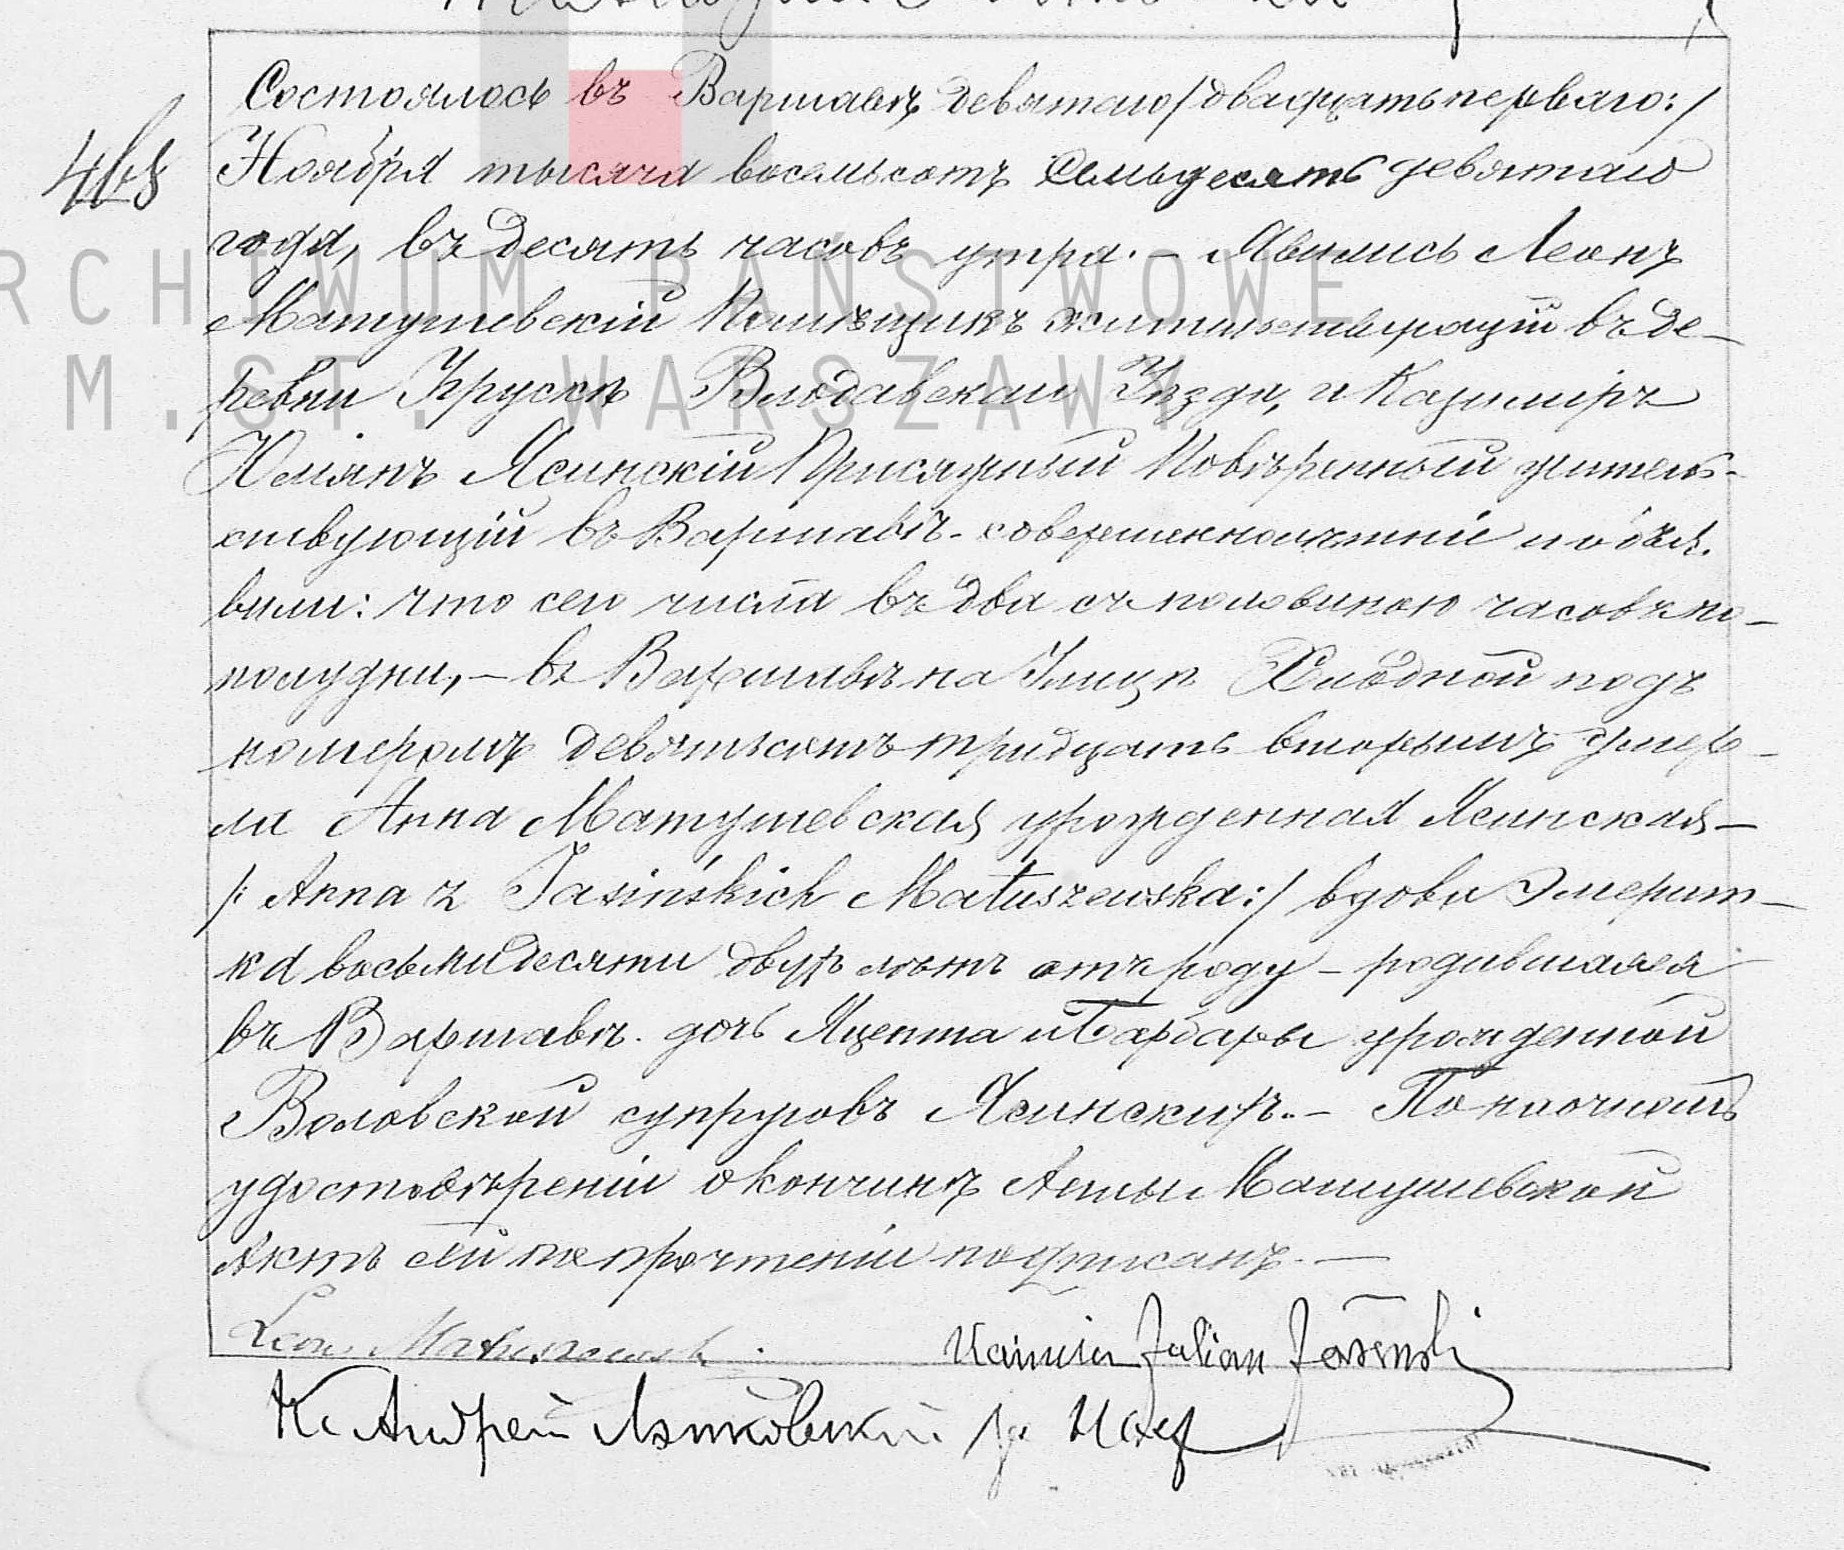 468
Состоялось въ Варшавѣ девятаго /двадцать перваго:/
Ноября тысяча восемьсотъ семьдесятъ девятаго
года, въ десять часовъ утра. – Явились Леонъ
Матушевскій Помѣщикъ жительствующій въ де-
ревни Крускѣ Влодавскаи Уѣзда, и Казимиръ
Юліянъ Ясинскій Присяжный Повѣренный житель-
ствующій въ Варшавѣ. совершеннолѣтніе и объя-
вили: что сего числа въ два съ половиною часовъ по-
полудни, – въ Варшавѣ на Улицѣ Хлодной подъ
номеромъ девятьсотъ тридцать вторымъ умер-
ла Анна Матушевская урожденная Ясинская –
/: Anna z Jasińskich Matuszewska:/ вдова Эмерит-
ка восьмидесяти двухъ лѣтъ отъ роду – родившаяся
въ Варшавѣ. дочь Яцента и Барбары урожденной
Воловской супруговъ Ясинскихъ. – По наочномъ
удостовѣреніи о кончинѣ Анны Матушевской
Актъ сей по прочтеніи подписанъ. –
Leon Matuszewski
Kazimierz Julian Jasiński
К. Андрей
ARCHIWUM PAŃSTWOWE
M. ST. WARSZAWY